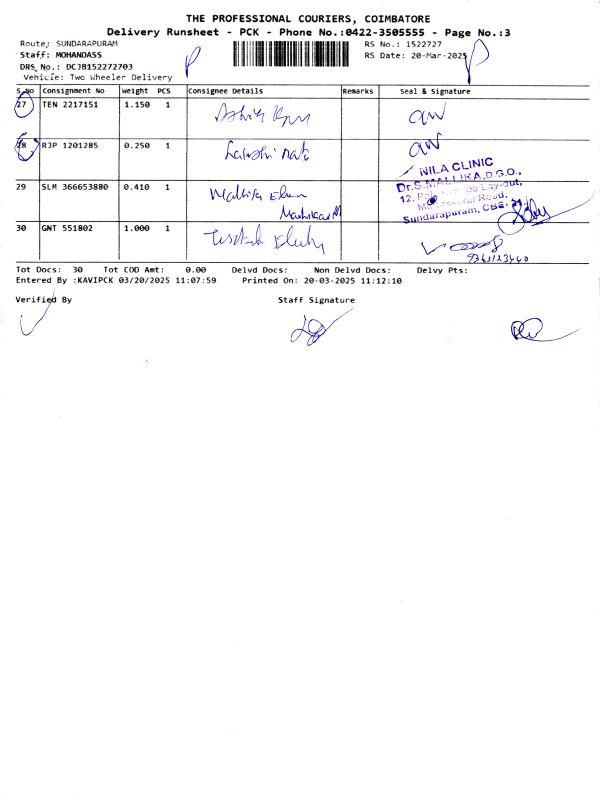 THE PROFESSIONAL COURIERS, COIMBATORE
Delivery Runsheet - PCK - Phone No.:0422-3505555 - Page No.:3
Route: SUNDARAPURAM
RS No.: 1522727
Staff: MOHANDASS
RS Date: 20-Mar-2025
DRS No.: DCJB152272703
Vehicle: Two Wheeler Delivery
S.No Consignment No Weight PCS Consignee Details Remarks Seal & Signature
27 TEN 2217151 1.150 1
28 RJP 1201285 0.250 1
29 SLM 366653880 0.410 1 Mallika
NILA CLINIC
Dr.S.MALLIKA,D.G.O.,
Lay-out,
Road,
Sundarapuram, CBE
30 GNT 551802 1.000 1
Tot Docs: 30 Tot COD Amt: 0.00 Delvd Docs: Non Delvd Docs: Delvy Pts:
Entered By :KAVIPCK 03/20/2025 11:07:59 Printed On: 20-03-2025 11:12:10
Verified By Staff Signature